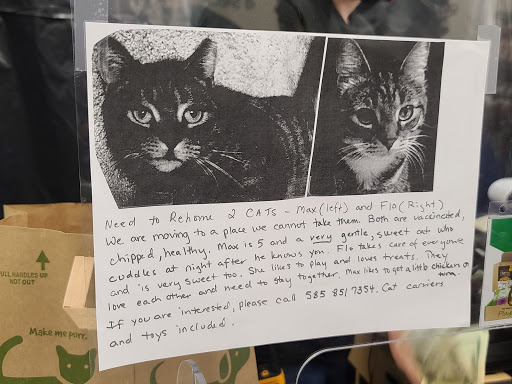 Need to Rehome 2 CATS - Max (left) and Flo (Right)
We are moving to a place we cannot take them. Both are vaccinated,
chipped, healthy. Max is 5 and a very gentle, sweet cat who
cuddles at night after he knows you. Flo takes care of everyone
and is very sweet too. She likes to play and loves treats. They
love each other and need to stay together. Max likes to get a little chicken or
tuna.
If you are interested, please call 585 851 7354. Cat carriers
and toys included.
PULL HANDLES UP
NOT OUT
Make me purr.